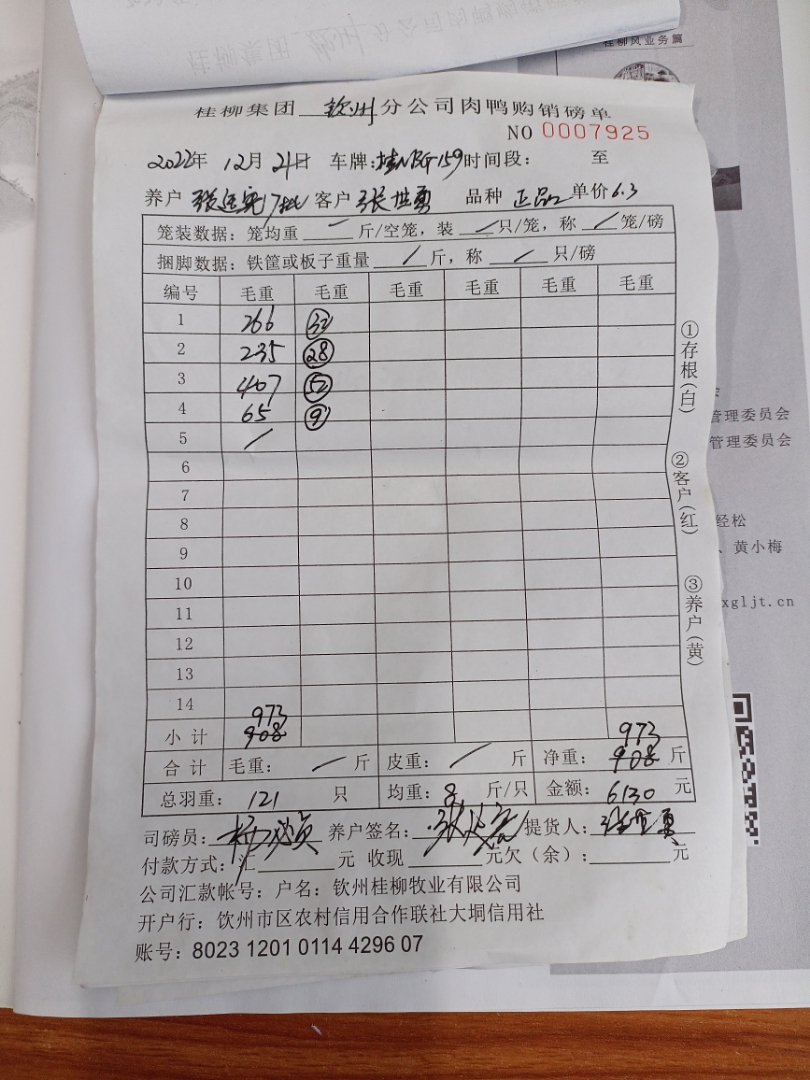 桂柳风业务篇
桂柳集团 钦州 分公司肉鸭购销磅单
NO 0007925
2022年 12月 21日 车牌:桂NBG159 时间段: 至
养户 客户 张世勇 品种 正品 单价 6.3
笼装数据:笼均重 / 斤/空笼,装 / 只/笼,称 / 笼/磅
捆脚数据:铁筐或板子重量 / 斤,称 / 只/磅
编号 毛重 毛重 毛重 毛重 毛重 毛重
1 266 32
2 235 28
3 407 52
4 65 9
5 /
6
7
8
9
10
11
12
13
14
小计 973 908 973 908
合计 毛重: / 斤 皮重: / 斤 净重: 973 908 斤
总羽重: 121 只 均重: 8 斤/只 金额: 6130 元
司磅员: 养户签名: 提货人:
付款方式:汇 元 收现 元欠(余): 元
公司汇款帐号:户名:钦州桂柳牧业有限公司
开户行:饮州市区农村信用合作联社大垌信用社
账号:8023 1201 0114 4296 07
①存根(白)
②客户(红)
③养户(黄)
管理委员会
管理委员会
经松
、黄小梅
xgljt.cn